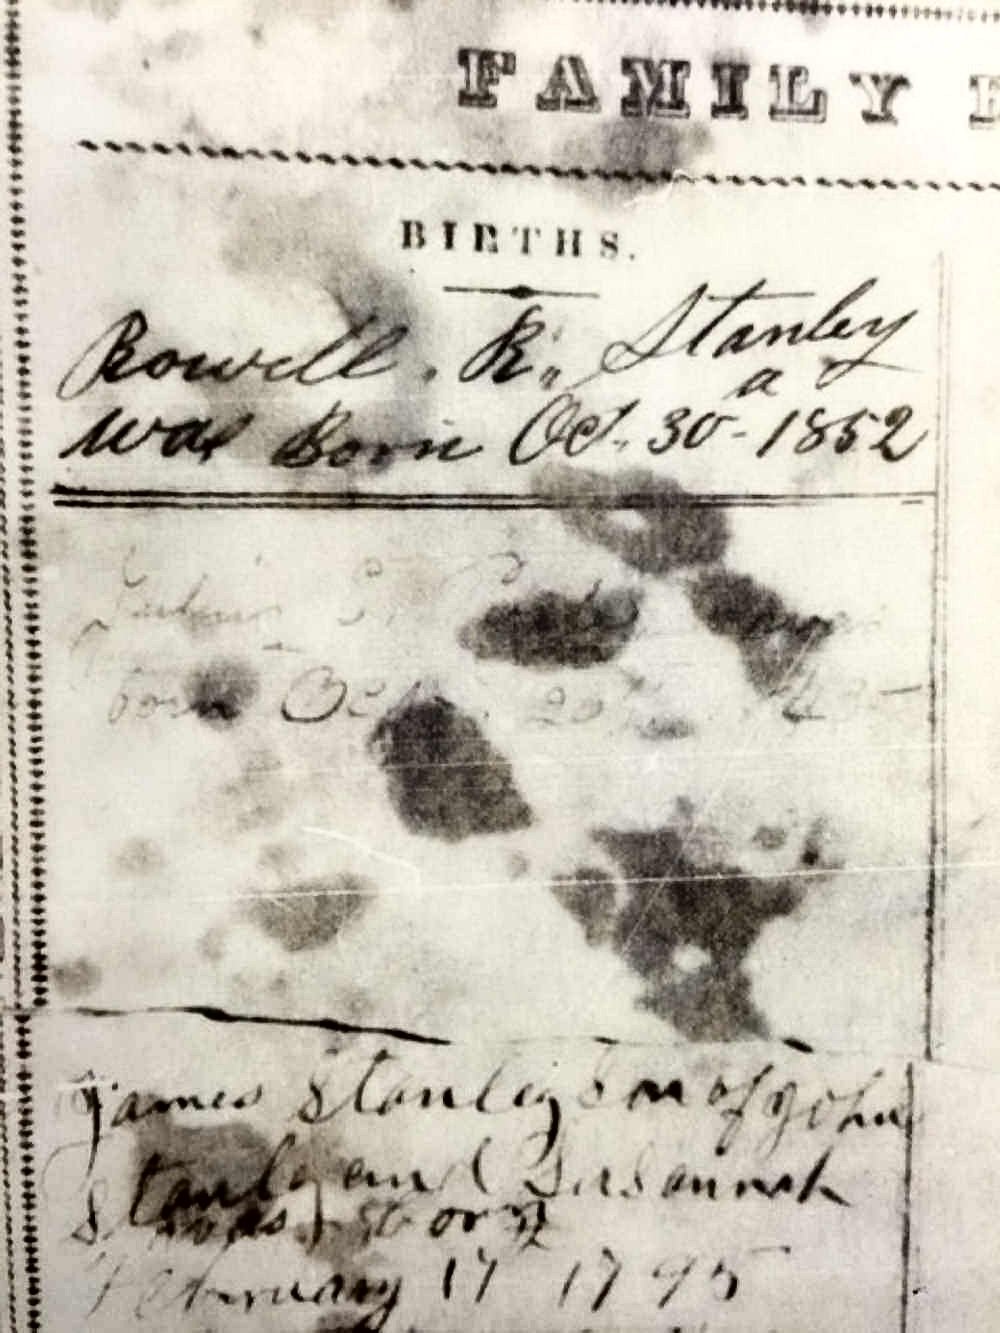 FAMILY
BIRTHS.
Rowell. R. Stanley
a
was Born Oct. 30 - 1852
born Oct 20
James Stanley Son of John
Stanley and Susannah
was Born
February 17 1795